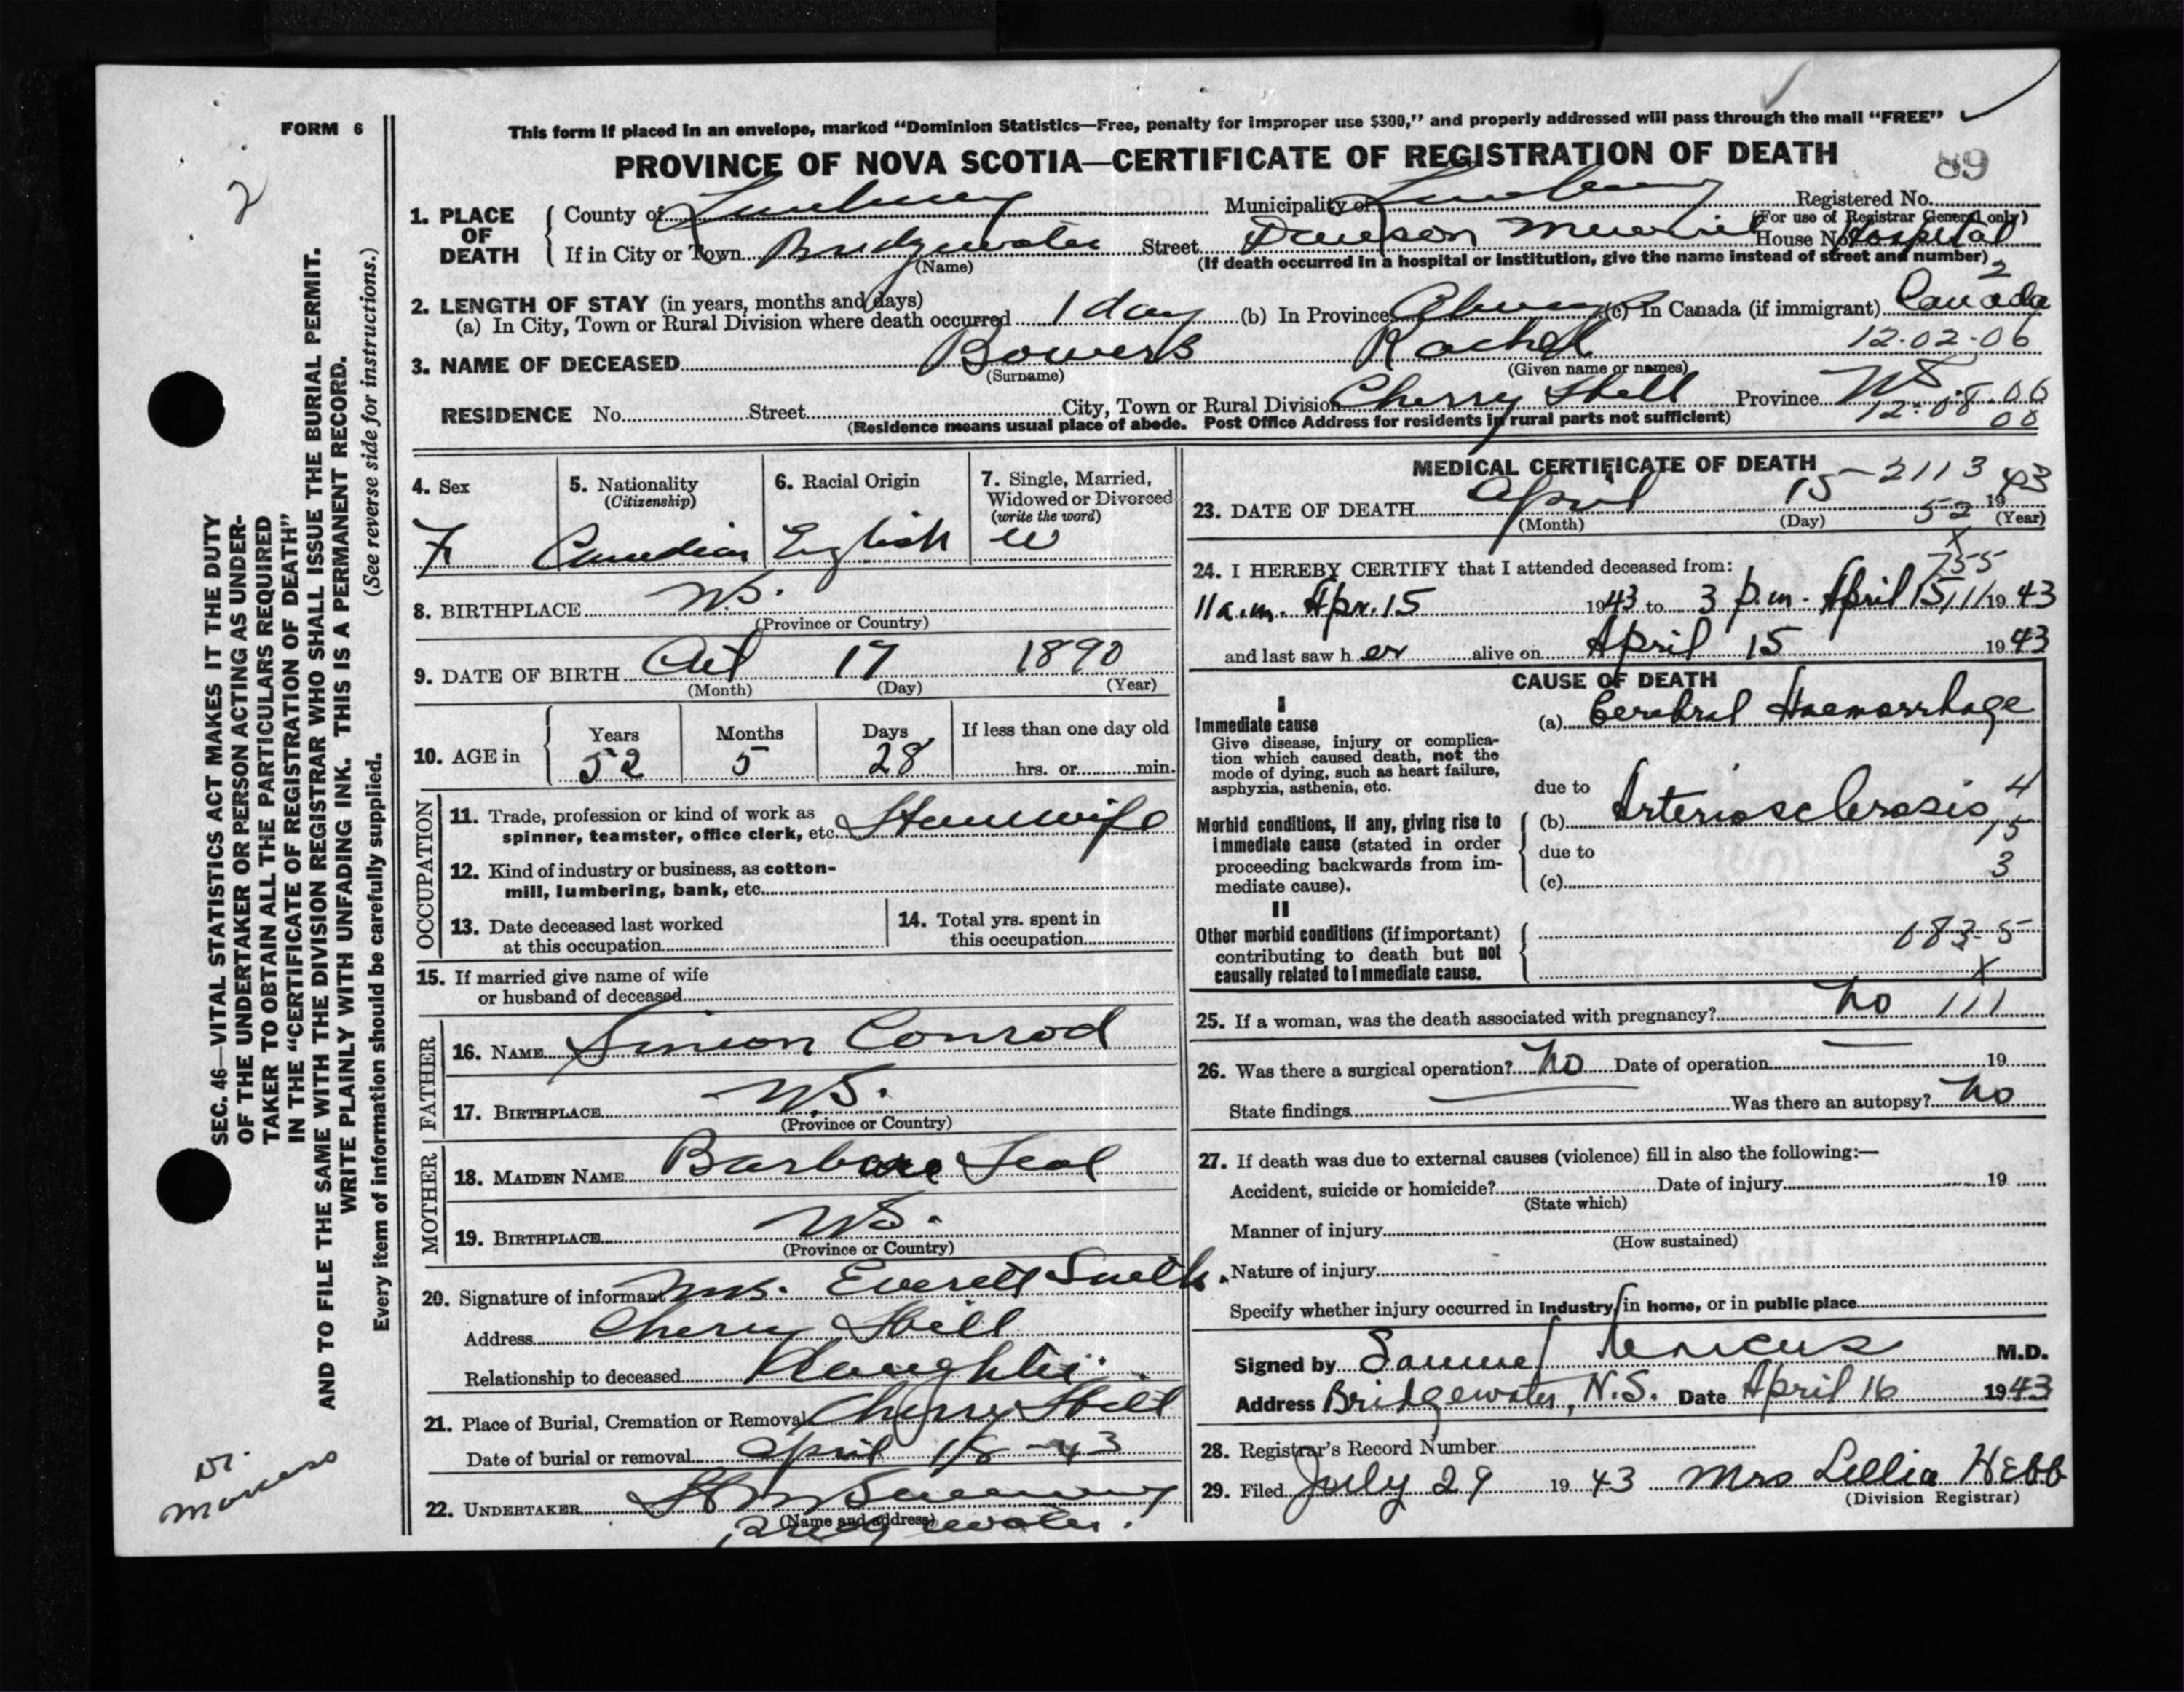 FORM 6
This form if placed in an envelope, marked "Dominion Statistics—Free, penalty for improper use $300," and properly addressed will pass through the mail "FREE"
PROVINCE OF NOVA SCOTIA—CERTIFICATE OF REGISTRATION OF DEATH
89
2
1. PLACE OF DEATH
County of Lunenburg Municipality of Lunenburg Registered No.
(For use of Registrar General only)
If in City or Town Bridgewater Street Dawson Memorial House No. Hospital
(Name) (If death occurred in a hospital or institution, give the name instead of street and number)
2
2. LENGTH OF STAY (in years, months and days)
(a) In City, Town or Rural Division where death occurred 1 day (b) In Province Always (c) In Canada (if immigrant) Canada
12.02.06
3. NAME OF DECEASED Bowers Rachel
(Surname) (Given name or names)
RESIDENCE No. Street City, Town or Rural Division Cherry Hill Province N.S.
12.08.06
00
(Residence means usual place of abode. Post Office Address for residents in rural parts not sufficient)
4. Sex
F
5. Nationality
(Citizenship)
Canadian
6. Racial Origin
English
7. Single, Married,
Widowed or Divorced
(write the word)
W
8. BIRTHPLACE N.S.
(Province or Country)
9. DATE OF BIRTH Oct 17 1890
(Month) (Day) (Year)
10. AGE in
Years Months Days If less than one day old
52 5 28 hrs. or min.
OCCUPATION
11. Trade, profession or kind of work as
spinner, teamster, office clerk, etc. Housewife
12. Kind of industry or business, as cotton-
mill, lumbering, bank, etc.
13. Date deceased last worked
at this occupation
14. Total yrs. spent in
this occupation
15. If married give name of wife
or husband of deceased
FATHER
16. NAME Simeon Conrod
17. BIRTHPLACE N.S.
(Province or Country)
MOTHER
18. MAIDEN NAME Barbara Teal
19. BIRTHPLACE N.S.
(Province or Country)
20. Signature of informant Mrs. Everett
Address Cherry Hill
Relationship to deceased Daughter
21. Place of Burial, Cremation or Removal Cherry Hill
Date of burial or removal April 18-43
22. UNDERTAKER
(Name and address)
Bridgewater.
MEDICAL CERTIFICATE OF DEATH
2113
23. DATE OF DEATH April 15 1943
52
(Month) (Day) (Year)
X
755
24. I HEREBY CERTIFY that I attended deceased from:
11 a.m. Apr. 15 1943 to 3 p.m. April 15, 1943
and last saw her alive on April 15 1943
CAUSE OF DEATH
I
Immediate cause
Give disease, injury or complica-
tion which caused death, not the
mode of dying, such as heart failure,
asphyxia, asthenia, etc.
(a) Cerebral Haemorrhage
due to
Morbid conditions, if any, giving rise to
immediate cause (stated in order
proceeding backwards from im-
mediate cause).
(b) Arteriosclerosis
4
15
due to
3
(c)
II
Other morbid conditions (if important)
contributing to death but not
causally related to immediate cause.
083-5
X
25. If a woman, was the death associated with pregnancy? No 111
26. Was there a surgical operation? No Date of operation 19
State findings Was there an autopsy? No
27. If death was due to external causes (violence) fill in also the following:—
Accident, suicide or homicide? Date of injury 19
(State which)
Manner of injury
(How sustained)
Nature of injury
Specify whether injury occurred in industry, in home, or in public place
Signed by Samuel Marcus M.D.
Address Bridgewater, N.S. Date April 16 1943
28. Registrar's Record Number
29. Filed July 29 1943 Mrs Lellia Hebb
(Division Registrar)
SEC. 46—VITAL STATISTICS ACT MAKES IT THE DUTY
OF THE UNDERTAKER OR PERSON ACTING AS UNDER-
TAKER TO OBTAIN ALL THE PARTICULARS REQUIRED
IN THE "CERTIFICATE OF REGISTRATION OF DEATH"
AND TO FILE THE SAME WITH THE DIVISION REGISTRAR WHO SHALL ISSUE THE BURIAL PERMIT.
WRITE PLAINLY WITH UNFADING INK. THIS IS A PERMANENT RECORD.
Every item of information should be carefully supplied. (See reverse side for instructions.)
Marcus